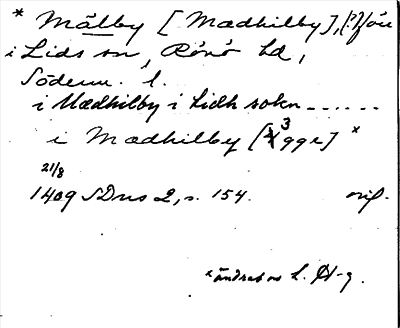 * Målby [Mædhilby], (?) för
i Lids sn, Rönö hd,
Söderm. l.
i Mædhilby i Lidh sokn ------
i Mædhilby [3 ggr] x
21/8
1409 SDns 2, s. 154. orig.
x ändrat av L. H-g.